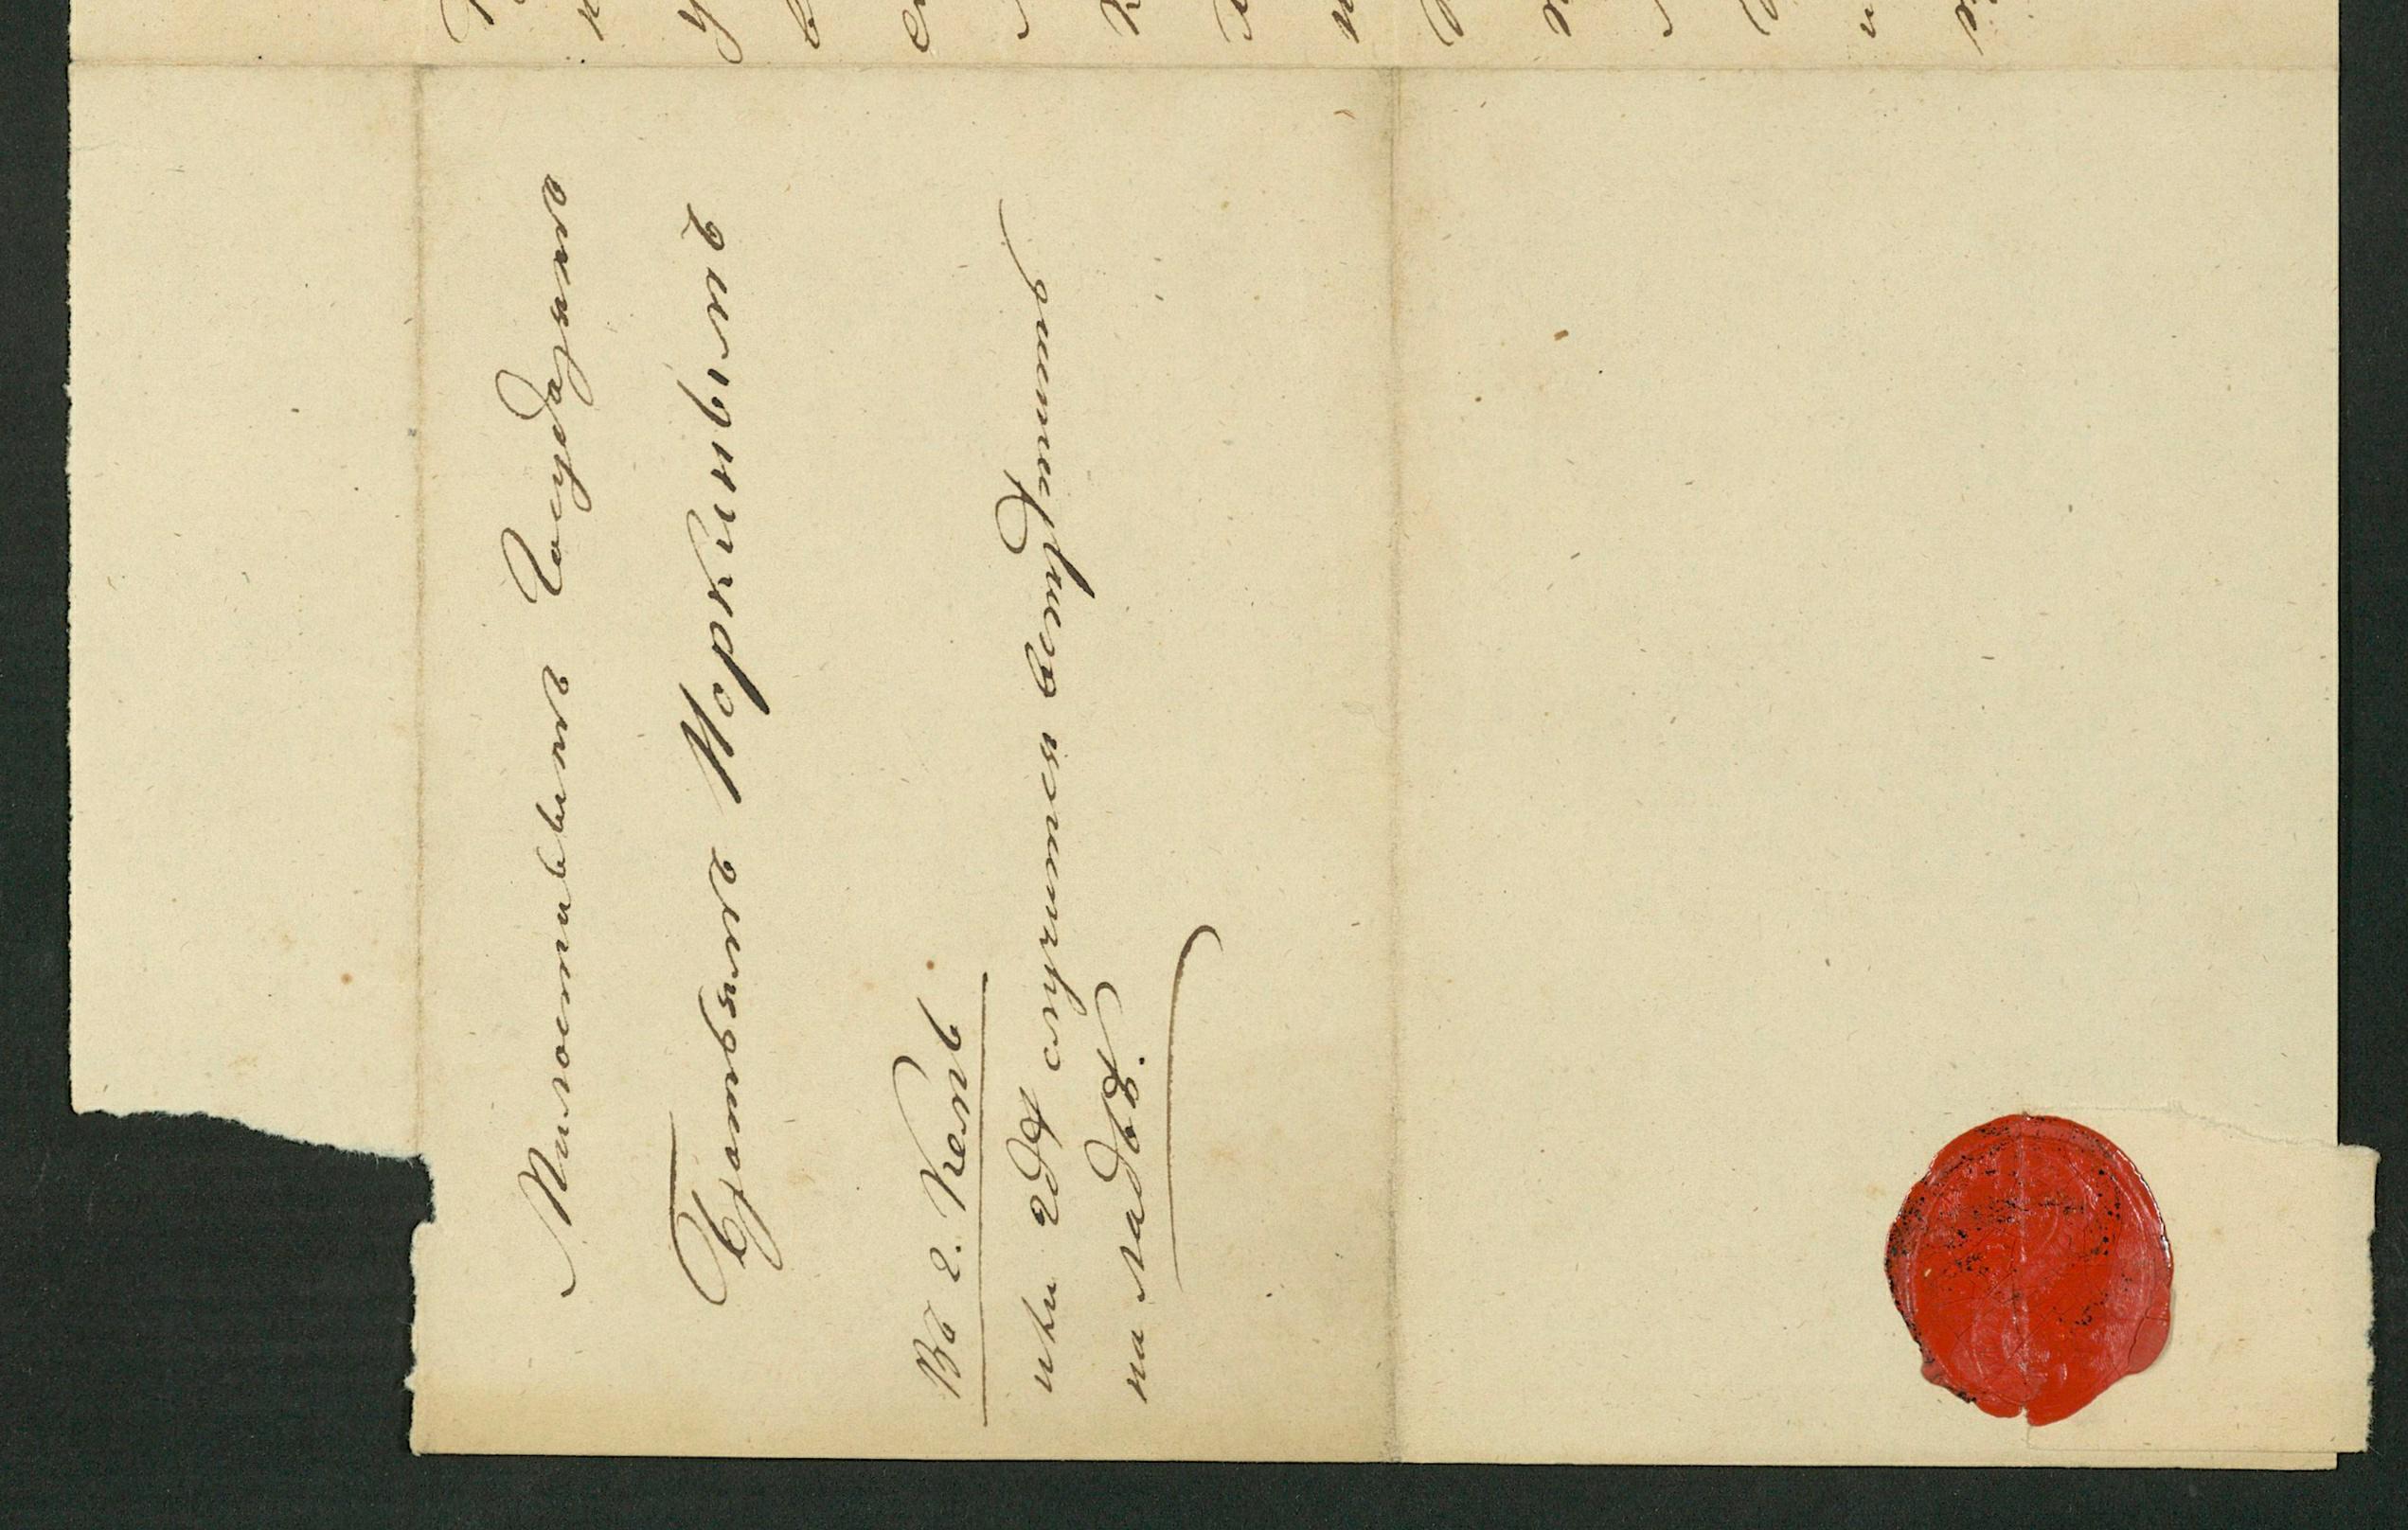 Милостивымъ Государямъ
Братьямъ Норкинымъ
Въ г. Кемь
или гдѣ случится встрѣтить
на ладьѣ.